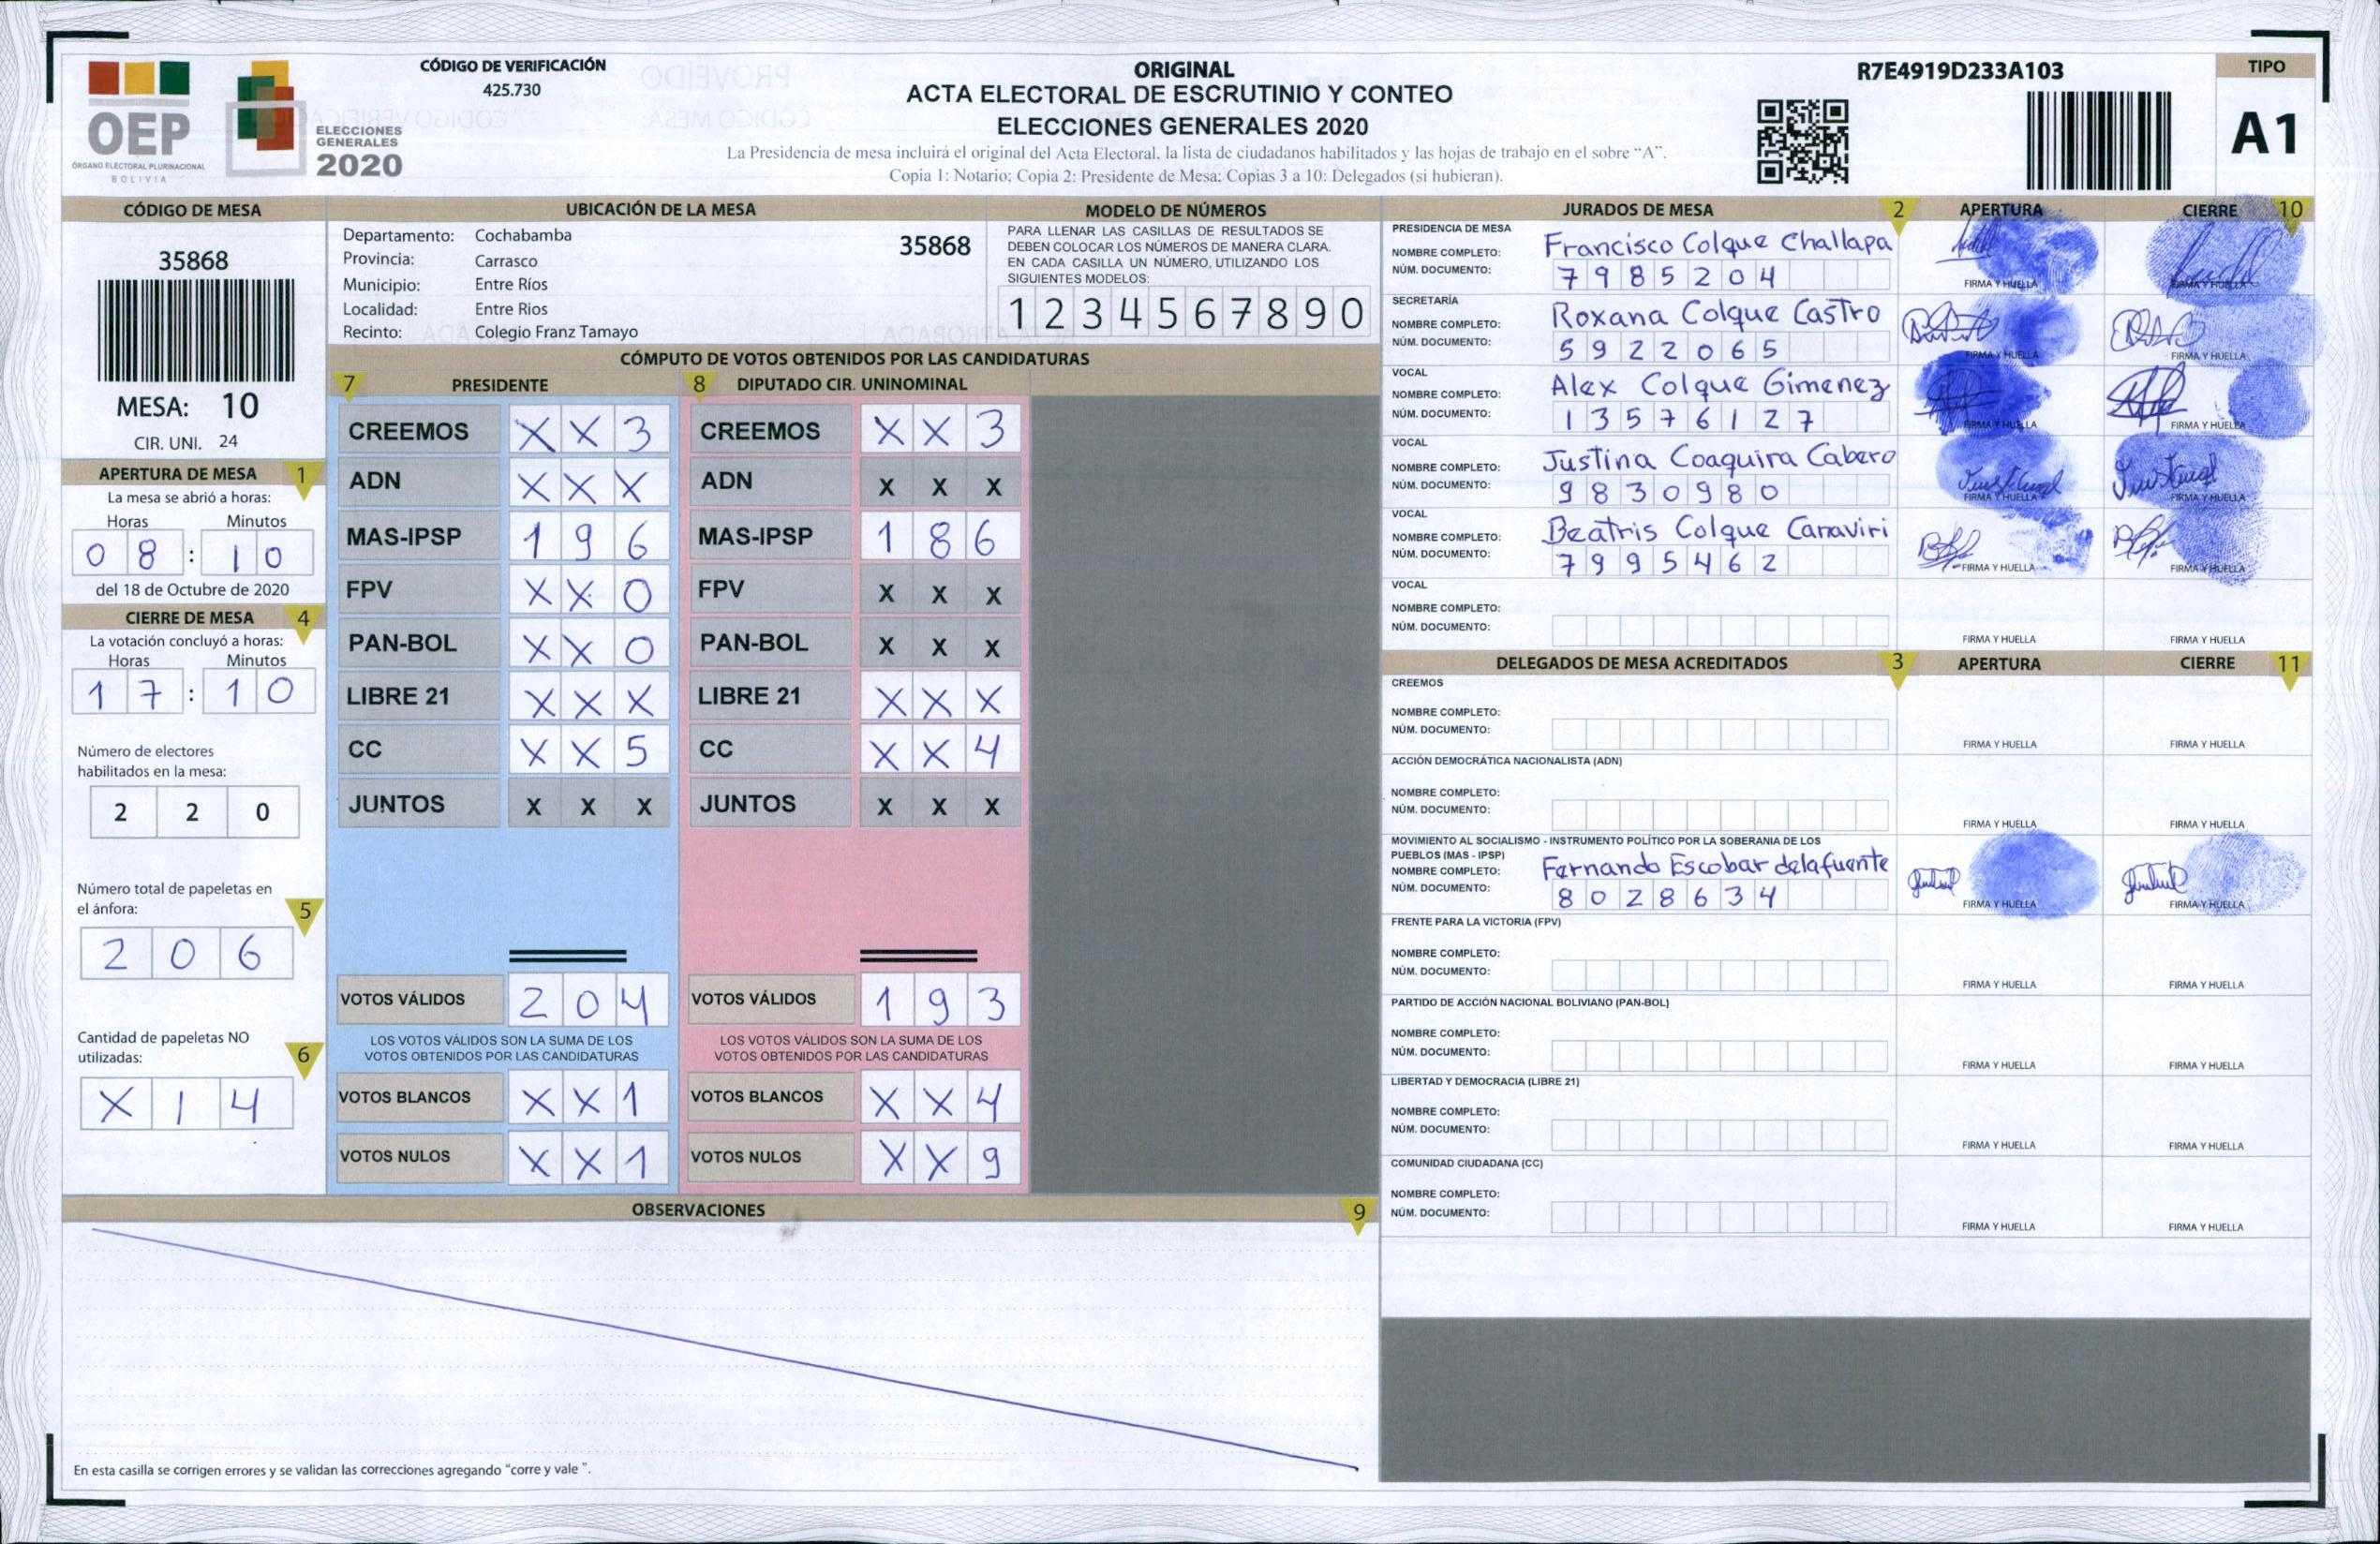 OEP
ÓRGANO ELECTORAL PLURINACIONAL
BOLIVIA
ELECCIONES
GENERALES
2020
CÓDIGO DE VERIFICACIÓN
425.730
ORIGINAL
ACTA ELECTORAL DE ESCRUTINIO Y CONTEO
ELECCIONES GENERALES 2020
La Presidencia de mesa incluirá el original del Acta Electoral, la lista de ciudadanos habilitados y las hojas de trabajo en el sobre "A".
Copia 1: Notario; Copia 2: Presidente de Mesa; Copias 3 a 10: Delegados (si hubieran).
R7E4919D233A103
TIPO
A1
CÓDIGO DE MESA
35868
MESA: 10
CIR. UNI. 24
APERTURA DE MESA 1
La mesa se abrió a horas:
Horas Minutos
0 8 : 1 0
del 18 de Octubre de 2020
CIERRE DE MESA 4
La votación concluyó a horas:
Horas Minutos
1 7 : 1 0
Número de electores
habilitados en la mesa:
2 2 0
Número total de papeletas en
el ánfora: 5
2 0 6
Cantidad de papeletas NO
utilizadas: 6
X 1 4
UBICACIÓN DE LA MESA
Departamento: Cochabamba 35868
Provincia: Carrasco
Municipio: Entre Ríos
Localidad: Entre Rios
Recinto: Colegio Franz Tamayo
MODELO DE NÚMEROS
PARA LLENAR LAS CASILLAS DE RESULTADOS SE
DEBEN COLOCAR LOS NÚMEROS DE MANERA CLARA.
EN CADA CASILLA UN NÚMERO, UTILIZANDO LOS
SIGUIENTES MODELOS:
1 2 3 4 5 6 7 8 9 0
CÓMPUTO DE VOTOS OBTENIDOS POR LAS CANDIDATURAS
7 PRESIDENTE 8 DIPUTADO CIR. UNINOMINAL
CREEMOS X X 3 CREEMOS X X 3
ADN X X X ADN X X X
MAS-IPSP 1 9 6 MAS-IPSP 1 8 6
FPV X X 0 FPV X X X
PAN-BOL X X 0 PAN-BOL X X X
LIBRE 21 X X X LIBRE 21 X X X
CC X X 5 CC X X 4
JUNTOS X X X JUNTOS X X X
VOTOS VÁLIDOS 2 0 4 VOTOS VÁLIDOS 1 9 3
LOS VOTOS VÁLIDOS SON LA SUMA DE LOS LOS VOTOS VÁLIDOS SON LA SUMA DE LOS
VOTOS OBTENIDOS POR LAS CANDIDATURAS VOTOS OBTENIDOS POR LAS CANDIDATURAS
VOTOS BLANCOS X X 1 VOTOS BLANCOS X X 4
VOTOS NULOS X X 1 VOTOS NULOS X X 9
OBSERVACIONES 9
En esta casilla se corrigen errores y se validan las correcciones agregando "corre y vale ".
JURADOS DE MESA 2 APERTURA CIERRE 10
PRESIDENCIA DE MESA
NOMBRE COMPLETO: Francisco Colque Challapa
NÚM. DOCUMENTO: 7 9 8 5 2 0 4
FIRMA Y HUELLA FIRMA Y HUELLA
SECRETARÍA
NOMBRE COMPLETO: Roxana Colque Castro
NÚM. DOCUMENTO: 5 9 2 2 0 6 5
FIRMA Y HUELLA FIRMA Y HUELLA
VOCAL
NOMBRE COMPLETO: Alex Colque Gimenez
NÚM. DOCUMENTO: 1 3 5 7 6 1 2 7
FIRMA Y HUELLA FIRMA Y HUELLA
VOCAL
NOMBRE COMPLETO: Justina Coaquira Cabero
NÚM. DOCUMENTO: 9 8 3 0 9 8 0
FIRMA Y HUELLA FIRMA Y HUELLA
VOCAL
NOMBRE COMPLETO: Beatris Colque Canaviri
NÚM. DOCUMENTO: 7 9 9 5 4 6 2
FIRMA Y HUELLA FIRMA Y HUELLA
VOCAL
NOMBRE COMPLETO:
NÚM. DOCUMENTO:
FIRMA Y HUELLA FIRMA Y HUELLA
DELEGADOS DE MESA ACREDITADOS 3 APERTURA CIERRE 11
CREEMOS
NOMBRE COMPLETO:
NÚM. DOCUMENTO:
FIRMA Y HUELLA FIRMA Y HUELLA
ACCIÓN DEMOCRÁTICA NACIONALISTA (ADN)
NOMBRE COMPLETO:
NÚM. DOCUMENTO:
FIRMA Y HUELLA FIRMA Y HUELLA
MOVIMIENTO AL SOCIALISMO - INSTRUMENTO POLÍTICO POR LA SOBERANIA DE LOS
PUEBLOS (MAS - IPSP)
NOMBRE COMPLETO: Fernando Escobar delafuente
NÚM. DOCUMENTO: 8 0 2 8 6 3 4
FIRMA Y HUELLA FIRMA Y HUELLA
FRENTE PARA LA VICTORIA (FPV)
NOMBRE COMPLETO:
NÚM. DOCUMENTO:
FIRMA Y HUELLA FIRMA Y HUELLA
PARTIDO DE ACCIÓN NACIONAL BOLIVIANO (PAN-BOL)
NOMBRE COMPLETO:
NÚM. DOCUMENTO:
FIRMA Y HUELLA FIRMA Y HUELLA
LIBERTAD Y DEMOCRACIA (LIBRE 21)
NOMBRE COMPLETO:
NÚM. DOCUMENTO:
FIRMA Y HUELLA FIRMA Y HUELLA
COMUNIDAD CIUDADANA (CC)
NOMBRE COMPLETO:
NÚM. DOCUMENTO:
FIRMA Y HUELLA FIRMA Y HUELLA